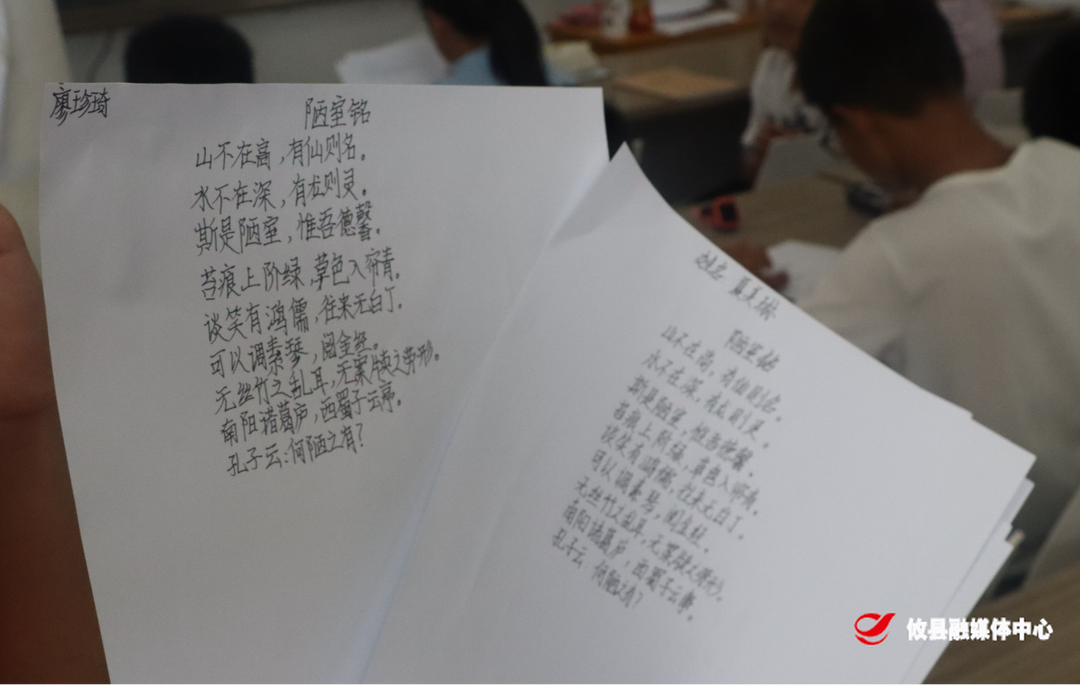 廖珍琦
陋室铭
山不在高，有仙则名。
水不在深，有龙则灵。
斯是陋室，惟吾德馨。
苔痕上阶绿，草色入帘青。
谈笑有鸿儒，往来无白丁。
可以调素琴，阅金经。
无丝竹之乱耳，无案牍之劳形。
南阳诸葛庐，西蜀子云亭。
孔子云：何陋之有？
姓名
陋室铭
山不在高，有仙则名。
水不在深，有龙则灵。
斯是陋室，惟吾德馨。
苔痕上阶绿，草色入帘青。
谈笑有鸿儒，往来无白丁。
可以调素琴，阅金经。
无丝竹之乱耳，无案牍之劳形。
南阳诸葛庐，西蜀子云亭。
孔子云：何陋之有？
攸县融媒体中心